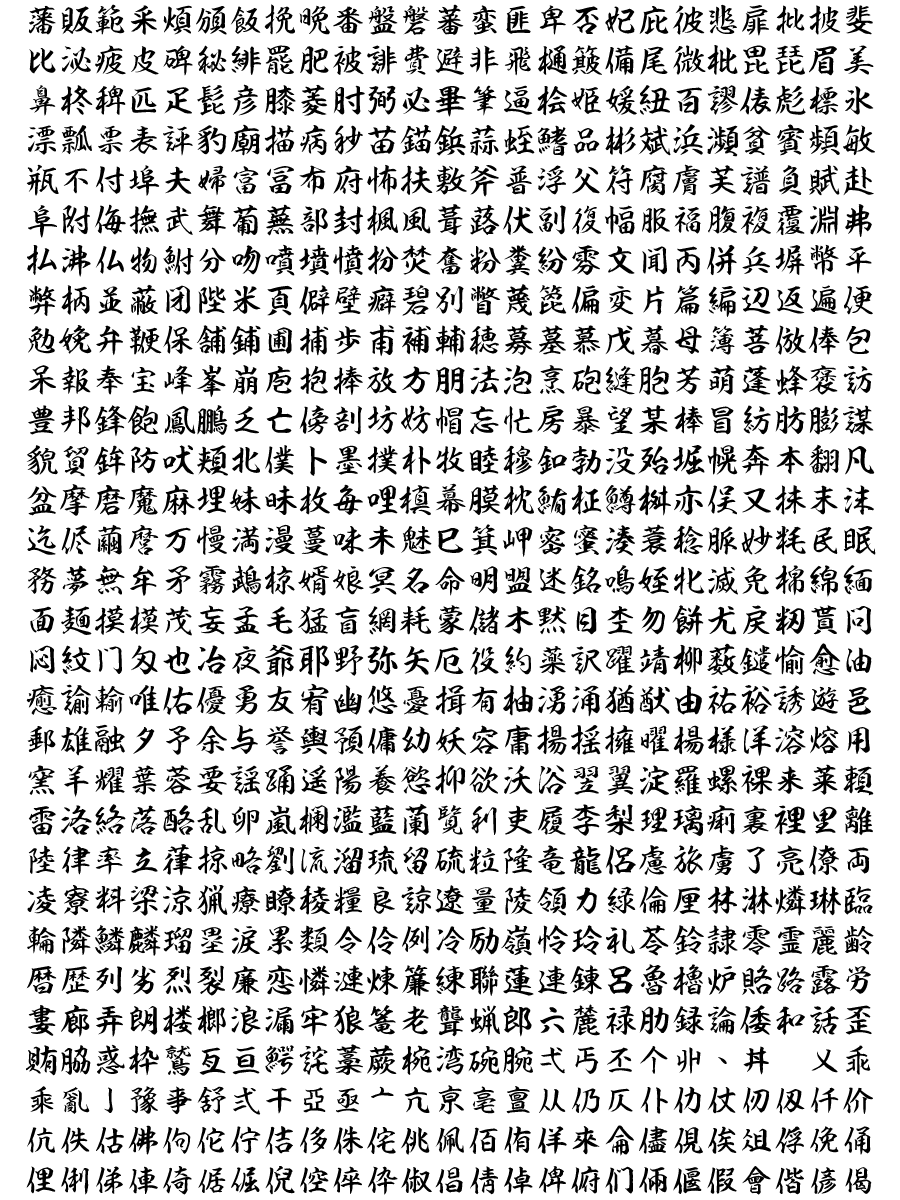 藩販範釆煩頒飯挽晩番盤磐蕃蛮匪卑否妃庇彼悲扉批披斐
比泌疲皮碑秘緋罷肥被誹費避非飛樋簸備尾微枇毘琵眉美
鼻柊稗匹疋髭彦膝菱肘弼必畢筆逼桧姫媛紐百謬俵彪標氷
漂瓢票表評豹廟描病秒苗錨鋲蒜蛭鰭品彬斌浜瀕貧賓頻敏
瓶不付埠夫婦富冨布府怖扶敷斧普浮父符腐膚芙譜負賦赴
阜附侮撫武舞葡蕪部封楓風葺蕗伏副復幅服福腹複覆淵弗
払沸仏物鮒分吻噴墳憤扮焚奮粉糞紛雰文聞丙併兵塀幣平
弊柄並蔽閉陛米頁僻壁癖碧別瞥蔑箆偏変片篇編辺返遍便
勉娩弁鞭保舗鋪圃捕歩甫補輔穂募墓慕戊暮母簿菩倣俸包
呆報奉宝峰峯崩庖抱捧放方朋法泡烹砲縫胞芳萌蓬蜂褒訪
豊邦鋒飽鳳鵬乏亡傍剖坊妨帽忘忙房暴望某棒冒紡肪膨謀
貌貿鉾防吠頬北僕卜墨撲朴牧睦穆釦勃没殆堀幌奔本翻凡
盆摩磨魔麻埋妹昧枚毎哩槙幕膜枕鮪柾鱒桝亦俣又抹末沫
迄侭繭麿万慢満漫蔓味未魅巳箕岬密蜜湊蓑稔脈妙粍民眠
務夢無牟矛霧鵡椋婿娘冥名命明盟迷銘鳴姪牝滅免棉綿緬
面麺摸模茂妄孟毛猛盲網耗蒙儲木黙目杢勿餅尤戻籾貰問
悶紋門匁也冶夜爺耶野弥矢厄役約薬訳躍靖柳薮鑓愉愈油
癒諭輸唯佑優勇友宥幽悠憂揖有柚湧涌猶猷由祐裕誘遊邑
郵雄融夕予余与誉輿預傭幼妖容庸揚揺擁曜楊様洋溶熔用
窯羊耀葉蓉要謡踊遥陽養慾抑欲沃浴翌翼淀羅螺裸来莱頼
雷洛絡落酪乱卵嵐欄濫藍蘭覧利吏履李梨理璃痢裏裡里離
陸律率立葎掠略劉流溜琉留硫粒隆竜龍侶慮旅虜了亮僚両
凌寮料梁涼猟療瞭稜糧良諒遼量陵領力緑倫厘林淋燐琳臨
輪隣鱗麟瑠塁涙累類令伶例冷励嶺怜玲礼苓鈴隷零霊麗齢
暦歴列劣烈裂廉恋憐漣煉簾練聯蓮連錬呂魯櫓炉賂路露労
婁廊弄朗楼榔浪漏牢狼篭老聾蝋郎六麓禄肋録論倭和話歪
賄脇惑枠鷲亙亘鰐詫藁蕨椀湾碗腕弌丐丕个丱丶丼　乂乖
乘亂亅豫亊舒弍于亞亟亠亢亰亳亶从仍仄仆仂仗仞仭仟价
伉佚估佛佝佗佇佶侈侏侘佻佩佰侑佯來侖儘俔俟俎俘俛俑
俚俐俤俥倚倨倔倪倥倅伜俶倡倩倬俾俯們倆偃假會偕偐偈